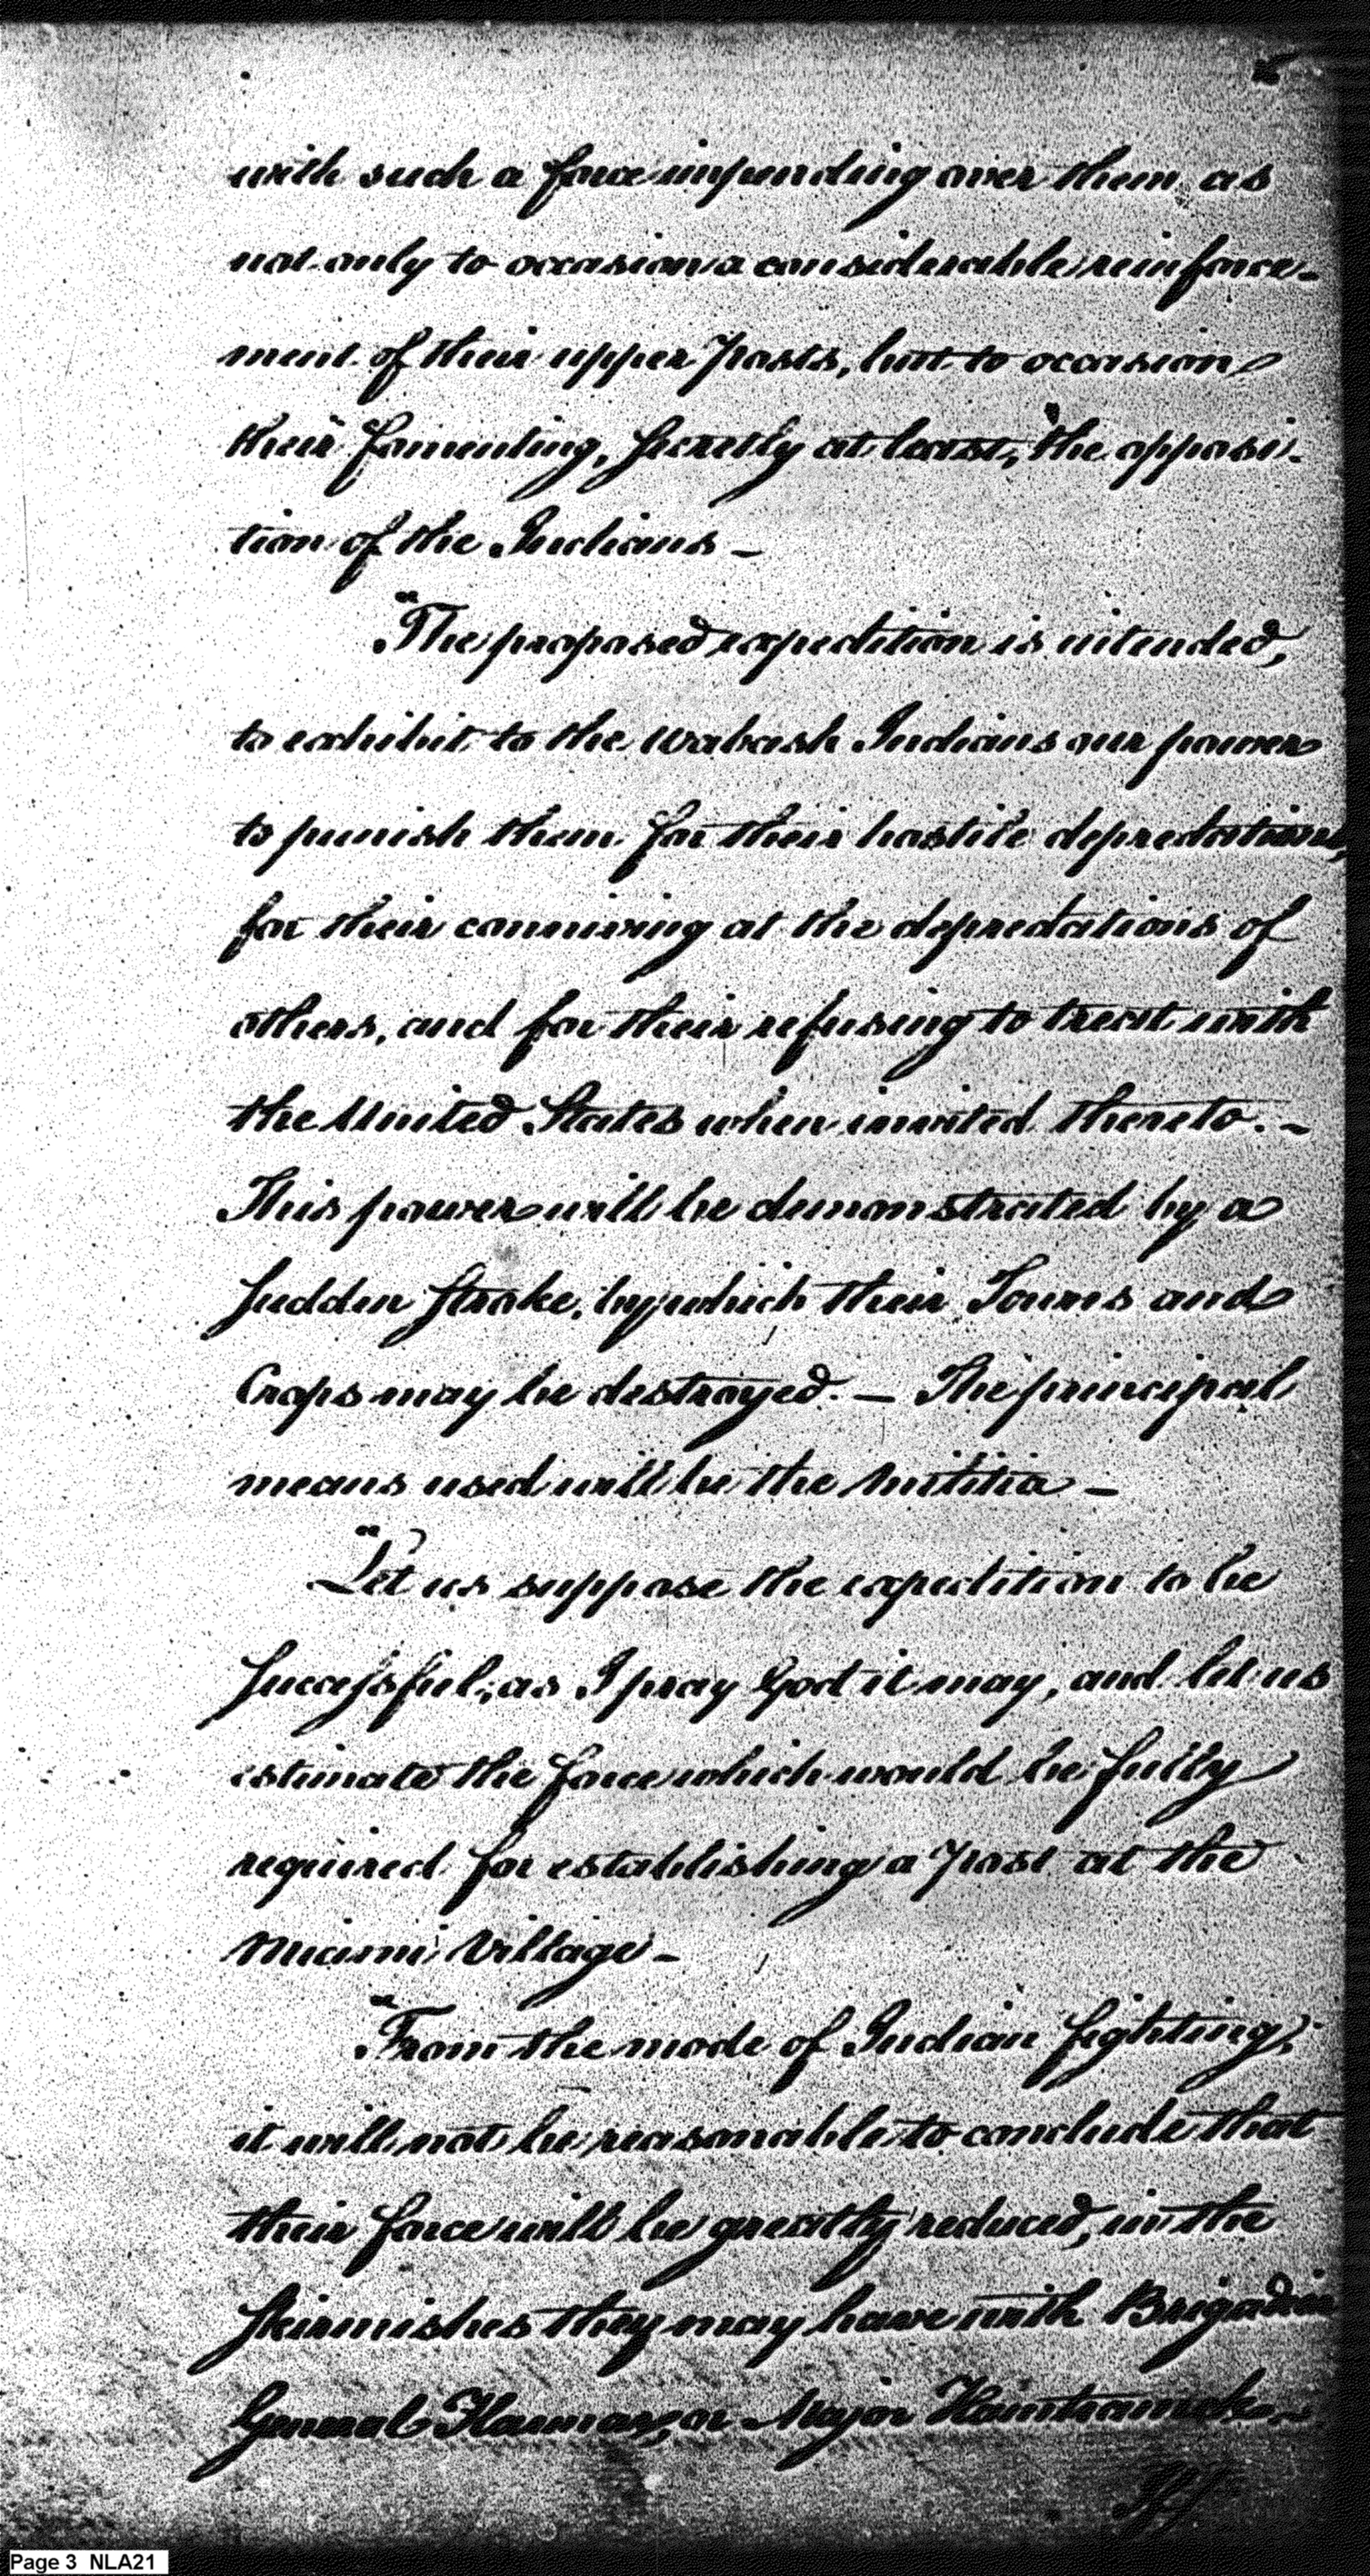 with such a force impending over them, as
not only to occasion a considerable reinforce-
ment of their upper posts, but to occasion
their fomenting, secretly at least, the opposi-
tion of the Indians —
"The proposed expedition is intended,
to exhibit to the Wabash Indians our power
to punish them for their hostile depredations,
for their conniving at the depredations of
others, and for their refusing to treat with
the United States when invited thereto. —
This power will be demonstrated by a
sudden stroke, by which their Towns and
Crops may be destroyed. — The principal
means used will be the Militia —
"Let us suppose the expedition to be
successful; as I pray God it may, and let us
estimate the force which would be fully
required for establishing a post at the
Miami Village —
"From the mode of Indian fighting,
it will not be reasonable to conclude that
their force will be greatly reduced, in the
skirmishes they may have with Brigadier
General Harmar, or Major Hamtramck —
Page 3 NLA21